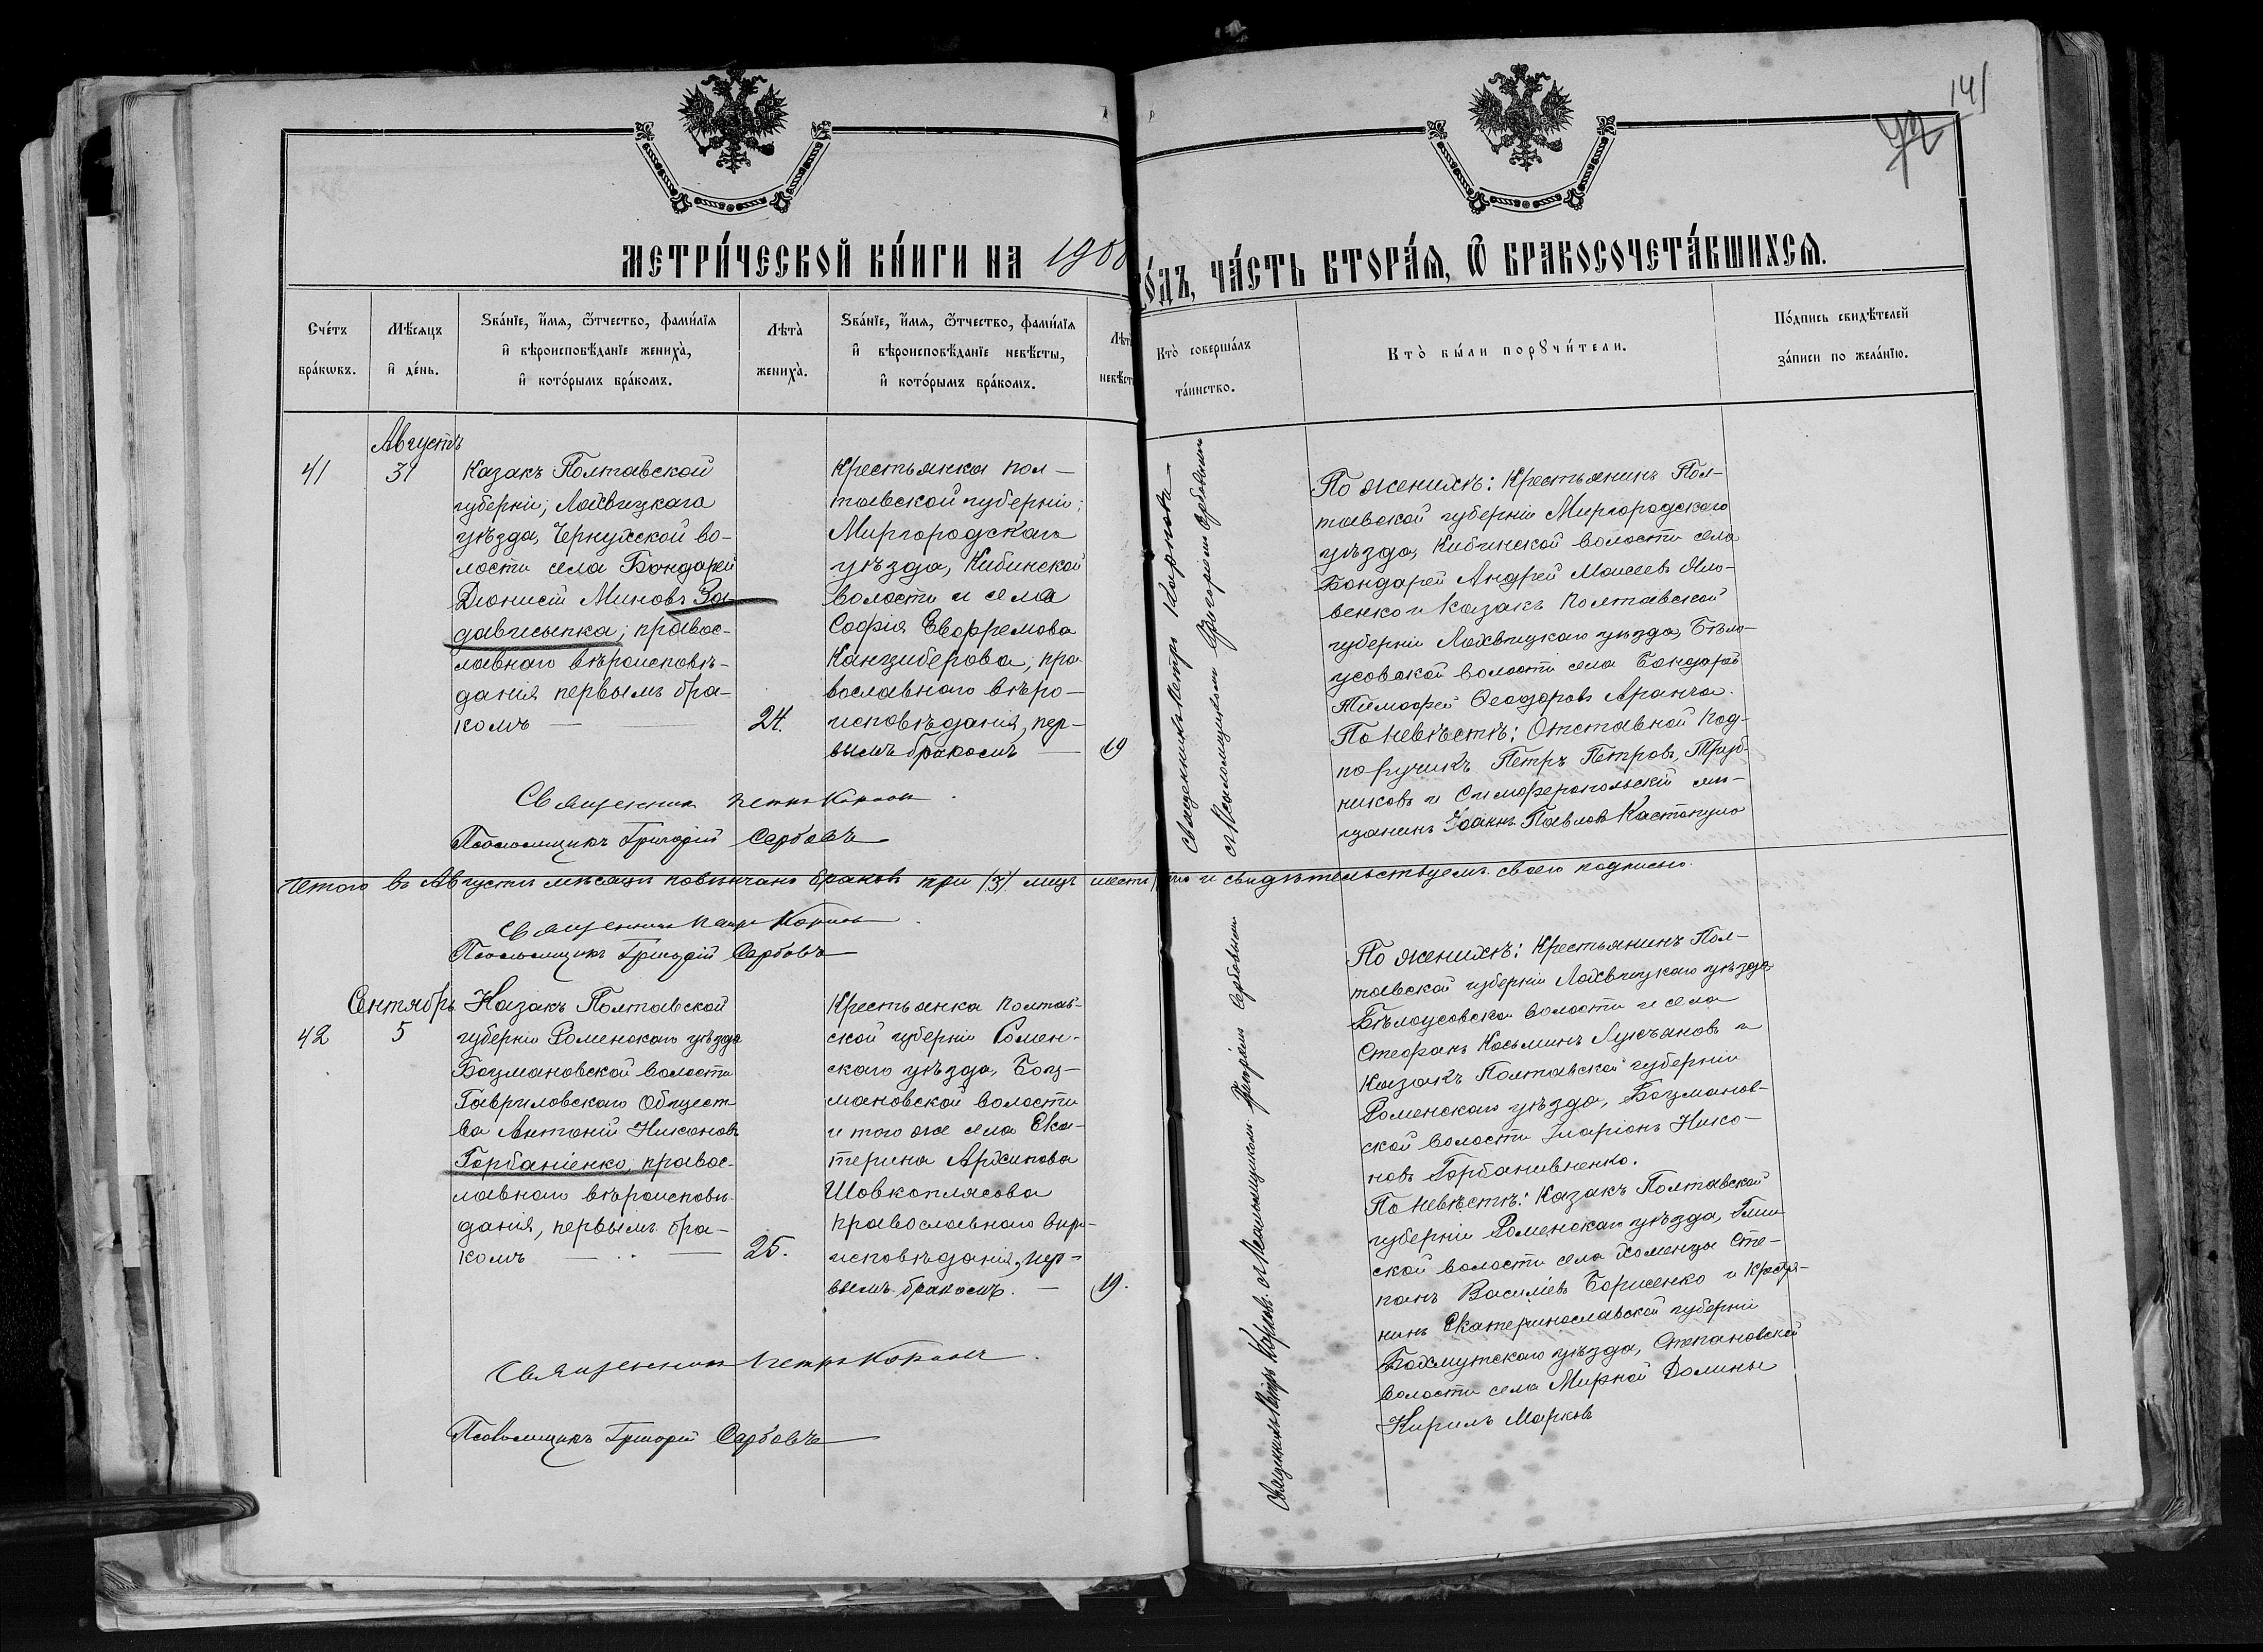 141
72
МЕТРИ́ЧЕСКОЙ КНИ́ГИ НА 1908
ГО́ДЪ, ЧА́СТЬ ВТОРА́Я, Ѿ БРАКОСОЧЕТА́ВШИХСЯ.
Сче́тъ бра́кѡвъ.
Мѣ́сяцъ и҆ де́нь.
Ѕва́нїе, и҆́мя, ѻ҆́тчество, фами́лїя
и҆ вѣроисповѣ́данїе жениха̀,
и҆ кото́рымъ бра́комъ.
Лѣта̀ жениха̀.
Ѕва́нїе, и҆́мя, ѻ҆́тчество, фами́лїя
и҆ вѣроисповѣ́данїе невѣ́сты,
и҆ кото́рымъ бра́комъ.
Лѣта̀ невѣ́сты
Кто̀ соверша́лъ та́инство.
Кто̀ бы́ли порꙋчи́тели.
По́дпись свидѣ́телей
за́писи по жела́нїю.
41
Августъ
31
Казакъ Полтавской
губерніи, Лохвицкаго
уѣзда, Чернухской во-
лости села Бондарей
Діонисій Миновъ За-
дависыпка, правос-
лавнаго вѣроисповѣ-
данія первымъ бра-
комъ
24.
Крестьянка Пол-
тавской губерніи,
Миргородскаго
уѣзда, Кибинской
волости и села
Софія Евфремова
Канциберова, пра-
вославнаго вѣро-
исповѣданія, пер-
вымъ бракомъ
19
Священникъ Петръ Карповъ
съ Псаломщикомъ Григоріемъ Сербовымъ
По женихѣ: Крестьянинъ Пол-
тавской губерніи Миргородскаго
уѣзда, Кибинской волости села
Бондарей Андрей Моисеевъ Яло-
венко и Казакъ Полтавской
губерніи Лохвицкаго уѣзда, Бѣло-
усовской волости села Бондарей
Тимофей Ѳеодоровъ Аранча.
По невѣстѣ: Отставной Под-
поручикъ Петръ Петровъ Труб-
никовъ и Симферопольскій мѣ-
щанинъ Іоаннъ Павловъ Кастопуло
Священникъ Петръ Карповъ
Псаломщикъ Григорій Сербовъ
Итого въ Августѣ мѣсяцѣ повѣнчано браковъ три /3/ лицъ шесть, что и свидѣтельствуемъ своею подписью.
Священникъ Петръ Карповъ
Псаломщикъ Григорій Сербовъ
42
Сентябрь
5
Казакъ Полтавской
губерніи Роменскаго уѣзда
Боцмановской волости
Гавриловскаго Общест-
ва Антоній Никоновъ
Горбаніенко, правос-
лавнаго вѣроисповѣ-
данія, первымъ бра-
комъ
25.
Крестьянка Полтав-
ской губерніи Ромен-
скаго уѣзда, Боц-
мановской волости
и того же села Ека-
терина Архипова
Шовкоплясова
православнаго вѣро-
исповѣданія, пер-
вымъ бракомъ.
19.
Священникъ Петръ Карповъ съ Псаломщикомъ Григоріемъ Сербовымъ
По женихѣ: Крестьянинъ Пол-
тавской губерніи Лохвицкаго уѣзда
Бѣлоусовской волости и села
Стефанъ Косьминъ Лукьяновъ и
Казакъ Полтавской губерніи
Роменскаго уѣзда, Боцманов-
ской волости Иларіонъ Нико-
новъ Горбанивненко.
По невѣстѣ: Казакъ Полтавской
губерніи Роменскаго уѣзда, Глин-
ской волости села Хоменцы Сте-
панъ Василіевъ Борисенко и Крестья-
нинъ Екатеринославской губерніи
Бахмутскаго уѣзда, Степановской
волости села Мирной Долины
Кириллъ Марковъ
Священникъ Петръ Карповъ
Псаломщикъ Григорій Сербовъ